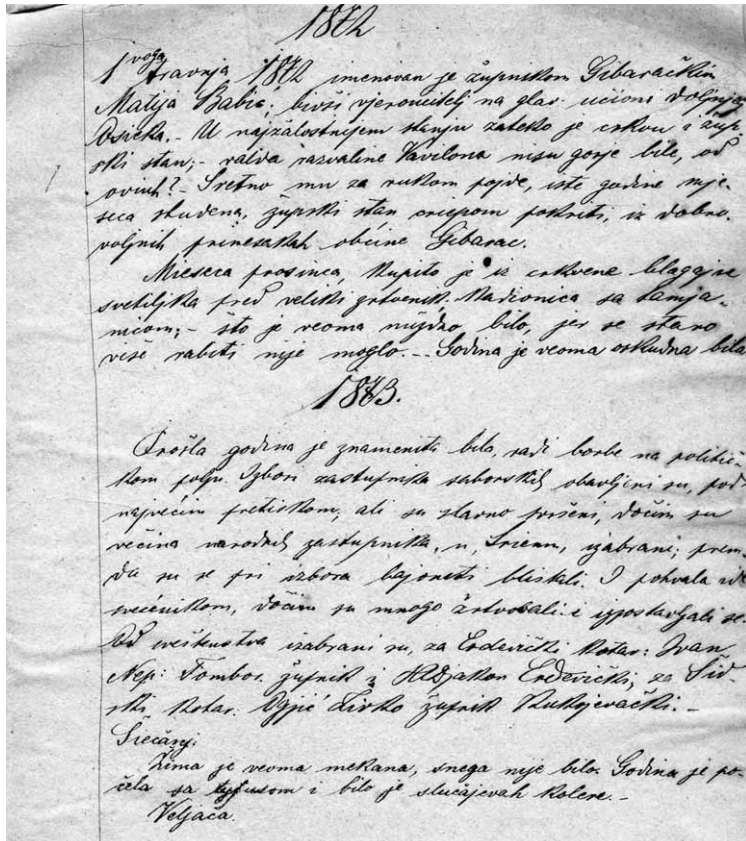 1872
1voga travnja 1872 imenovan je župnikom Gibaračkim
Matija Babić; bivši vjeroučitelj na glav. učioni doljnjega
Osieka. – U najžalostnijem stanju zateko je crkvu i žup-
ski stan; – valda razvaline Vavilona nisu gorje bile, od
oviuh? – Sretno mu za rukom pojde, iste godine mje-
seca studena, župski stan criepom pokriti, iz dobro-
voljnih prinesakah občine Gibarac.
Mieseca prosinca, kupito je iz crkvene blagajne
svetiljka pred veliki žrtvenik. Kadionica sa tamja-
nicom; – što je veoma nuždno bilo, jer se staro
više rabiti nije moglo. – Godina je veoma oskudna bila
1873.
Prošla godina je znamenita bila, radi borbe na politič-
kom polju. Izbori zastupnika saborskih obavljeni su, pod
najvećim pretiskom, ali su slavno svršeni, dočim su
većina narodnih zastupnika, u Sriemu, izabrani; prem-
da su se pri izbora bajoneti bliskali. I pohvala ide
svećenikom, dočim su mnogo žrtvovali i izpostavljali se.
Od sveštenstva izabrani su, za Erdevički kotar: Ivan
Nep: Tombor. župnik i Erdevički; za Šid-
ski kotar. Živko župnik Kukujevački. –
Siečanj:
Zima je veoma mekana, snega nije bilo. Godina je po-
čela sa tyfusom i bilo je slučajevah kolere. –
Veljača.